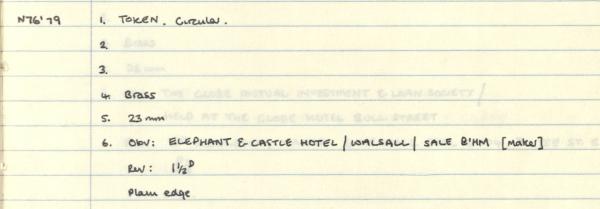 N76'79 1. TOKEN. Circular.
2.
3.
4. Brass
5. 23mm
6. Obv: ELEPHANT & CASTLE HOTEL / WALSALL / SALE B'HM [maker]
Rev: 1½D
Plain edge